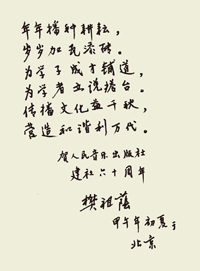 年年播种耕耘，
岁岁加瓦添砖。
为学子成才铺道，
为学者立说搭台。
传播文化益千秋，
营造和谐利万代。
贺人民音乐出版社
建社六十周年
樊祖荫
甲午年初夏于
北京